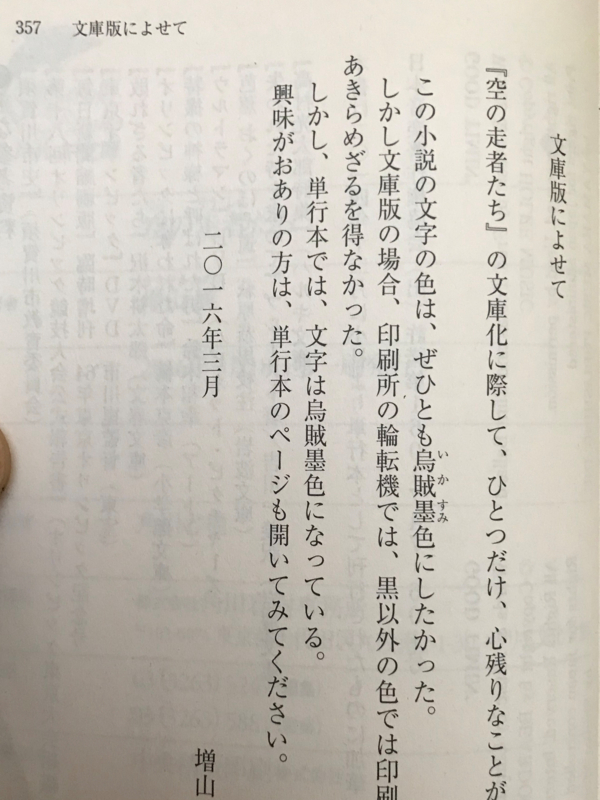 357　文庫版によせて
文庫版によせて
『空の走者たち』の文庫化に際して、ひとつだけ、心残りなことが
この小説の文字の色は、ぜひとも烏賊墨色にしたかった。
いかすみ
しかし文庫版の場合、印刷所の輪転機では、黒以外の色では印刷
あきらめざるを得なかった。
しかし、単行本では、文字は烏賊墨色になっている。
興味がおありの方は、単行本のページも開いてみてください。
二〇一六年三月
増山